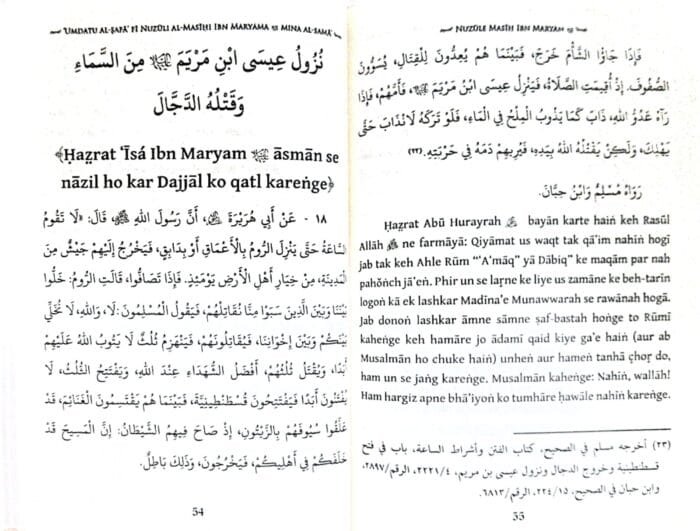 'Umdatu al-Ṣafā' fī Nuzūli al-Masīḥi Ibn Maryama ﷺ mina al-Samā'
نُزُولُ عِيسَى ابْنِ مَرْيَمَ ﷺ مِنَ السَّمَاءِ
وَقَتْلُهُ الدَّجَّالَ
﴾Ḥaẓrat 'Īsá Ibn Maryam ﷺ āsmān se
nāzil ho kar Dajjāl ko qatl kareṅge﴿
١٨ - عَنْ أَبِي هُرَيْرَةَ ؓ، أَنَّ رَسُولَ اللهِ ﷺ، قَالَ: «لَا تَقُومُ
السَّاعَةُ حَتَّى يَنْزِلَ الرُّومُ بِالْأَعْمَاقِ أَوْ بِدَابِقٍ، فَيَخْرُجُ إِلَيْهِمْ جَيْشٌ مِنَ
الْمَدِينَةِ، مِنْ خِيَارِ أَهْلِ الْأَرْضِ يَوْمَئِذٍ. فَإِذَا تَصَافُّوا، قَالَتِ الرُّومُ: خَلُّوا
بَيْنَنَا وَبَيْنَ الَّذِينَ سَبَوْا مِنَّا نُقَاتِلْهُمْ، فَيَقُولُ الْمُسْلِمُونَ: لَا، وَاللهِ، لَا نُخَلِّي
بَيْنَكُمْ وَبَيْنَ إِخْوَانِنَا، فَيُقَاتِلُونَهُمْ، فَيَنْهَزِمُ ثُلُثٌ لَا يَتُوبُ اللهُ عَلَيْهِمْ
أَبَدًا، وَيُقْتَلُ ثُلُثُهُمْ، أَفْضَلُ الشُّهَدَاءِ عِنْدَ اللهِ، وَيَفْتَتِحُ الثُّلُثُ، لَا
يُفْتَنُونَ أَبَدًا فَيَفْتَتِحُونَ قُسْطَنْطِينِيَّةَ، فَبَيْنَمَا هُمْ يَقْتَسِمُونَ الْغَنَائِمَ، قَدْ
عَلَّقُوا سُيُوفَهُمْ بِالزَّيْتُونِ، إِذْ صَاحَ فِيهِمُ الشَّيْطَانُ: إِنَّ الْمَسِيحَ قَدْ
خَلَفَكُمْ فِي أَهْلِيكُمْ، فَيَخْرُجُونَ، وَذَلِكَ بَاطِلٌ.
54
Nuzūle Masīḥ Ibn Maryam ﷺ
فَإِذَا جَاؤُوا الشَّأْمَ خَرَجَ، فَبَيْنَمَا هُمْ يُعِدُّونَ لِلْقِتَالِ، يُسَوُّونَ
الصُّفُوفَ، إِذْ أُقِيمَتِ الصَّلَاةُ، فَيَنْزِلُ عِيسَى ابْنُ مَرْيَمَ ﷺ، فَأَمَّهُمْ، فَإِذَا
رَآهُ عَدُوُّ اللهِ، ذَابَ كَمَا يَذُوبُ الْمِلْحُ فِي الْمَاءِ، فَلَوْ تَرَكَهُ لَانْذَابَ حَتَّى
يَهْلِكَ، وَلَكِنْ يَقْتُلُهُ اللهُ بِيَدِهِ، فَيُرِيهِمْ دَمَهُ فِي حَرْبَتِهِ. (٢٣)
رَوَاهُ مُسْلِمٌ وَابْنُ حِبَّانَ.
Ḥaẓrat Abū Hurayrah ؓ bayān karte haiṅ keh Rasūl
Allāh ﷺ ne farmāyā: Qiyāmat us waqt tak qā'im nahiṅ hogī
jab tak keh Ahle Rūm “A'māq” yā Dābiq” ke maqām par nah
pahoṅch jā'eṅ. Phir un se laṛne ke liye us zamāne ke beh-tarīn
logoṅ kā ek lashkar Madīna'e Munawwarah se rawānah hogā.
Jab donoṅ lashkar āmne sāmne ṣaf-bastah hoṅge to Rūmī
kaheṅge keh hamāre jo ādamī qaid kiye ga'e haiṅ (aur ab
Musalmān ho chuke haiṅ) unheṅ aur hameṅ tanhā choṛ do,
ham un se jaṅg kareṅge. Musalmān kaheṅge: Nahiṅ, wallāh!
Ham hargiz apne bhā'iyoṅ ko tumhāre ḥawāle nahiṅ kareṅge.
(٢٣) أخرجه مسلم في الصحيح، كتاب الفتن وأشراط الساعة، باب في فتح
قسطنطينية وخروج الدجال ونزول عيسى بن مريم، ٢٢٢١/٤، الرقم/٢٨٩٧،
وابن حبان في الصحيح، ٢٢٤/١٥، الرقم/٦٨١٣.
55